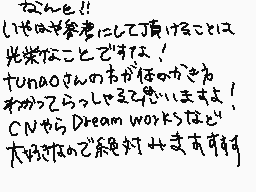 なんと!!
いやはや参考にして頂けることは
光栄なことですな!
tunaoさんのわが体のかき方
わかってらっしゃると思いますよ!
CNやらDream worksなど
大好きなので絶対みますすすす